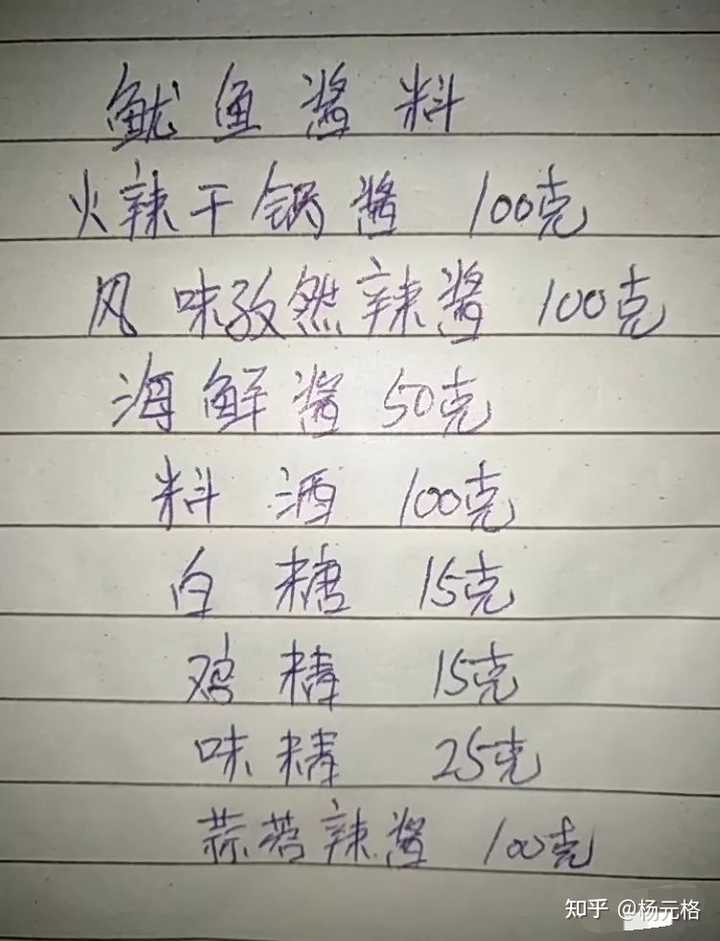 鱿鱼酱料
火辣干锅酱 100克
风味孜然辣酱 100克
海鲜酱 50克
料酒 100克
白糖 15克
鸡精 15克
味精 25克
蒜蓉辣酱 100克
知乎 @杨元格